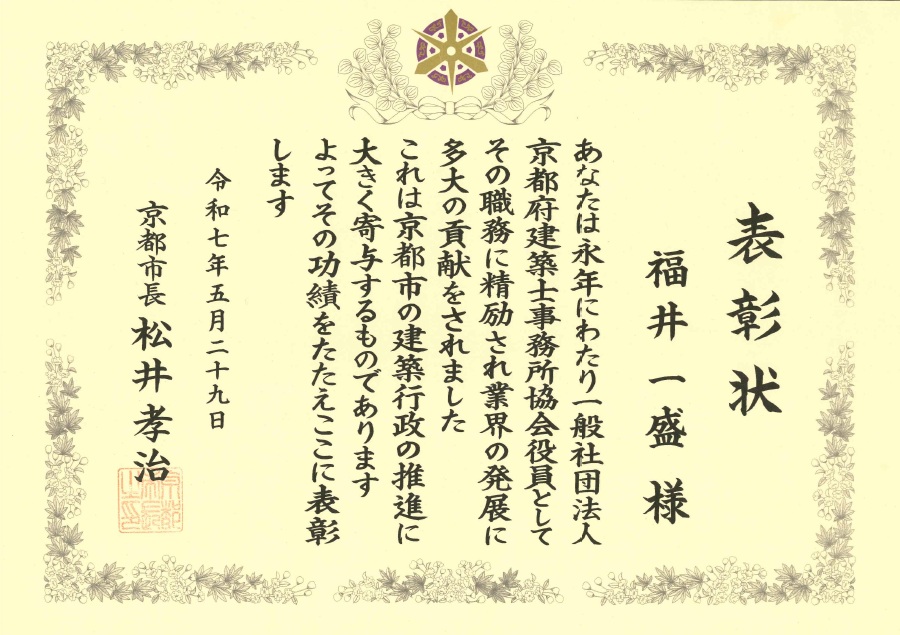 表彰状
福井一盛様
あなたは永年にわたり一般社団法人
京都府建築士事務所協会役員として
その職務に精励され業界の発展に
多大の貢献をされました
これは京都市の建築行政の推進に
大きく寄与するものであります
よってその功績をたたえここに表彰
します
令和七年五月二十九日
京都市長 松井孝治